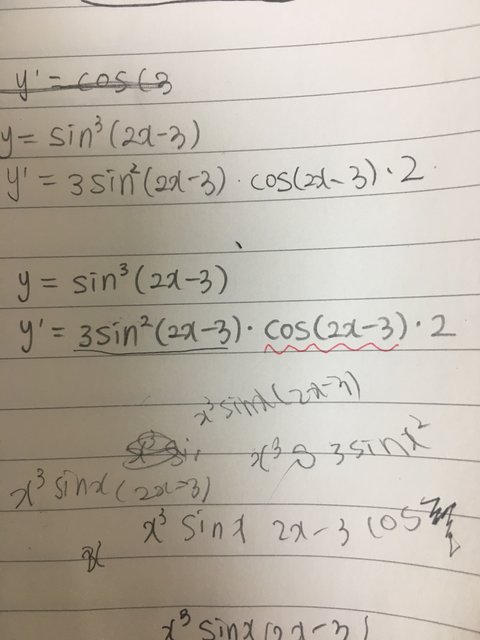 y' = cos(3
y = sin³(2x-3)
y' = 3sin²(2x-3) · cos(2x-3) · 2
y = sin³(2x-3)
y' = 3sin²(2x-3) · cos(2x-3) · 2
x³sinx(2x-3)
x³ 3sinx²
x³sinx(2x-3)
x³ sinx 2x-3 cos
x³sinx(2x-3)